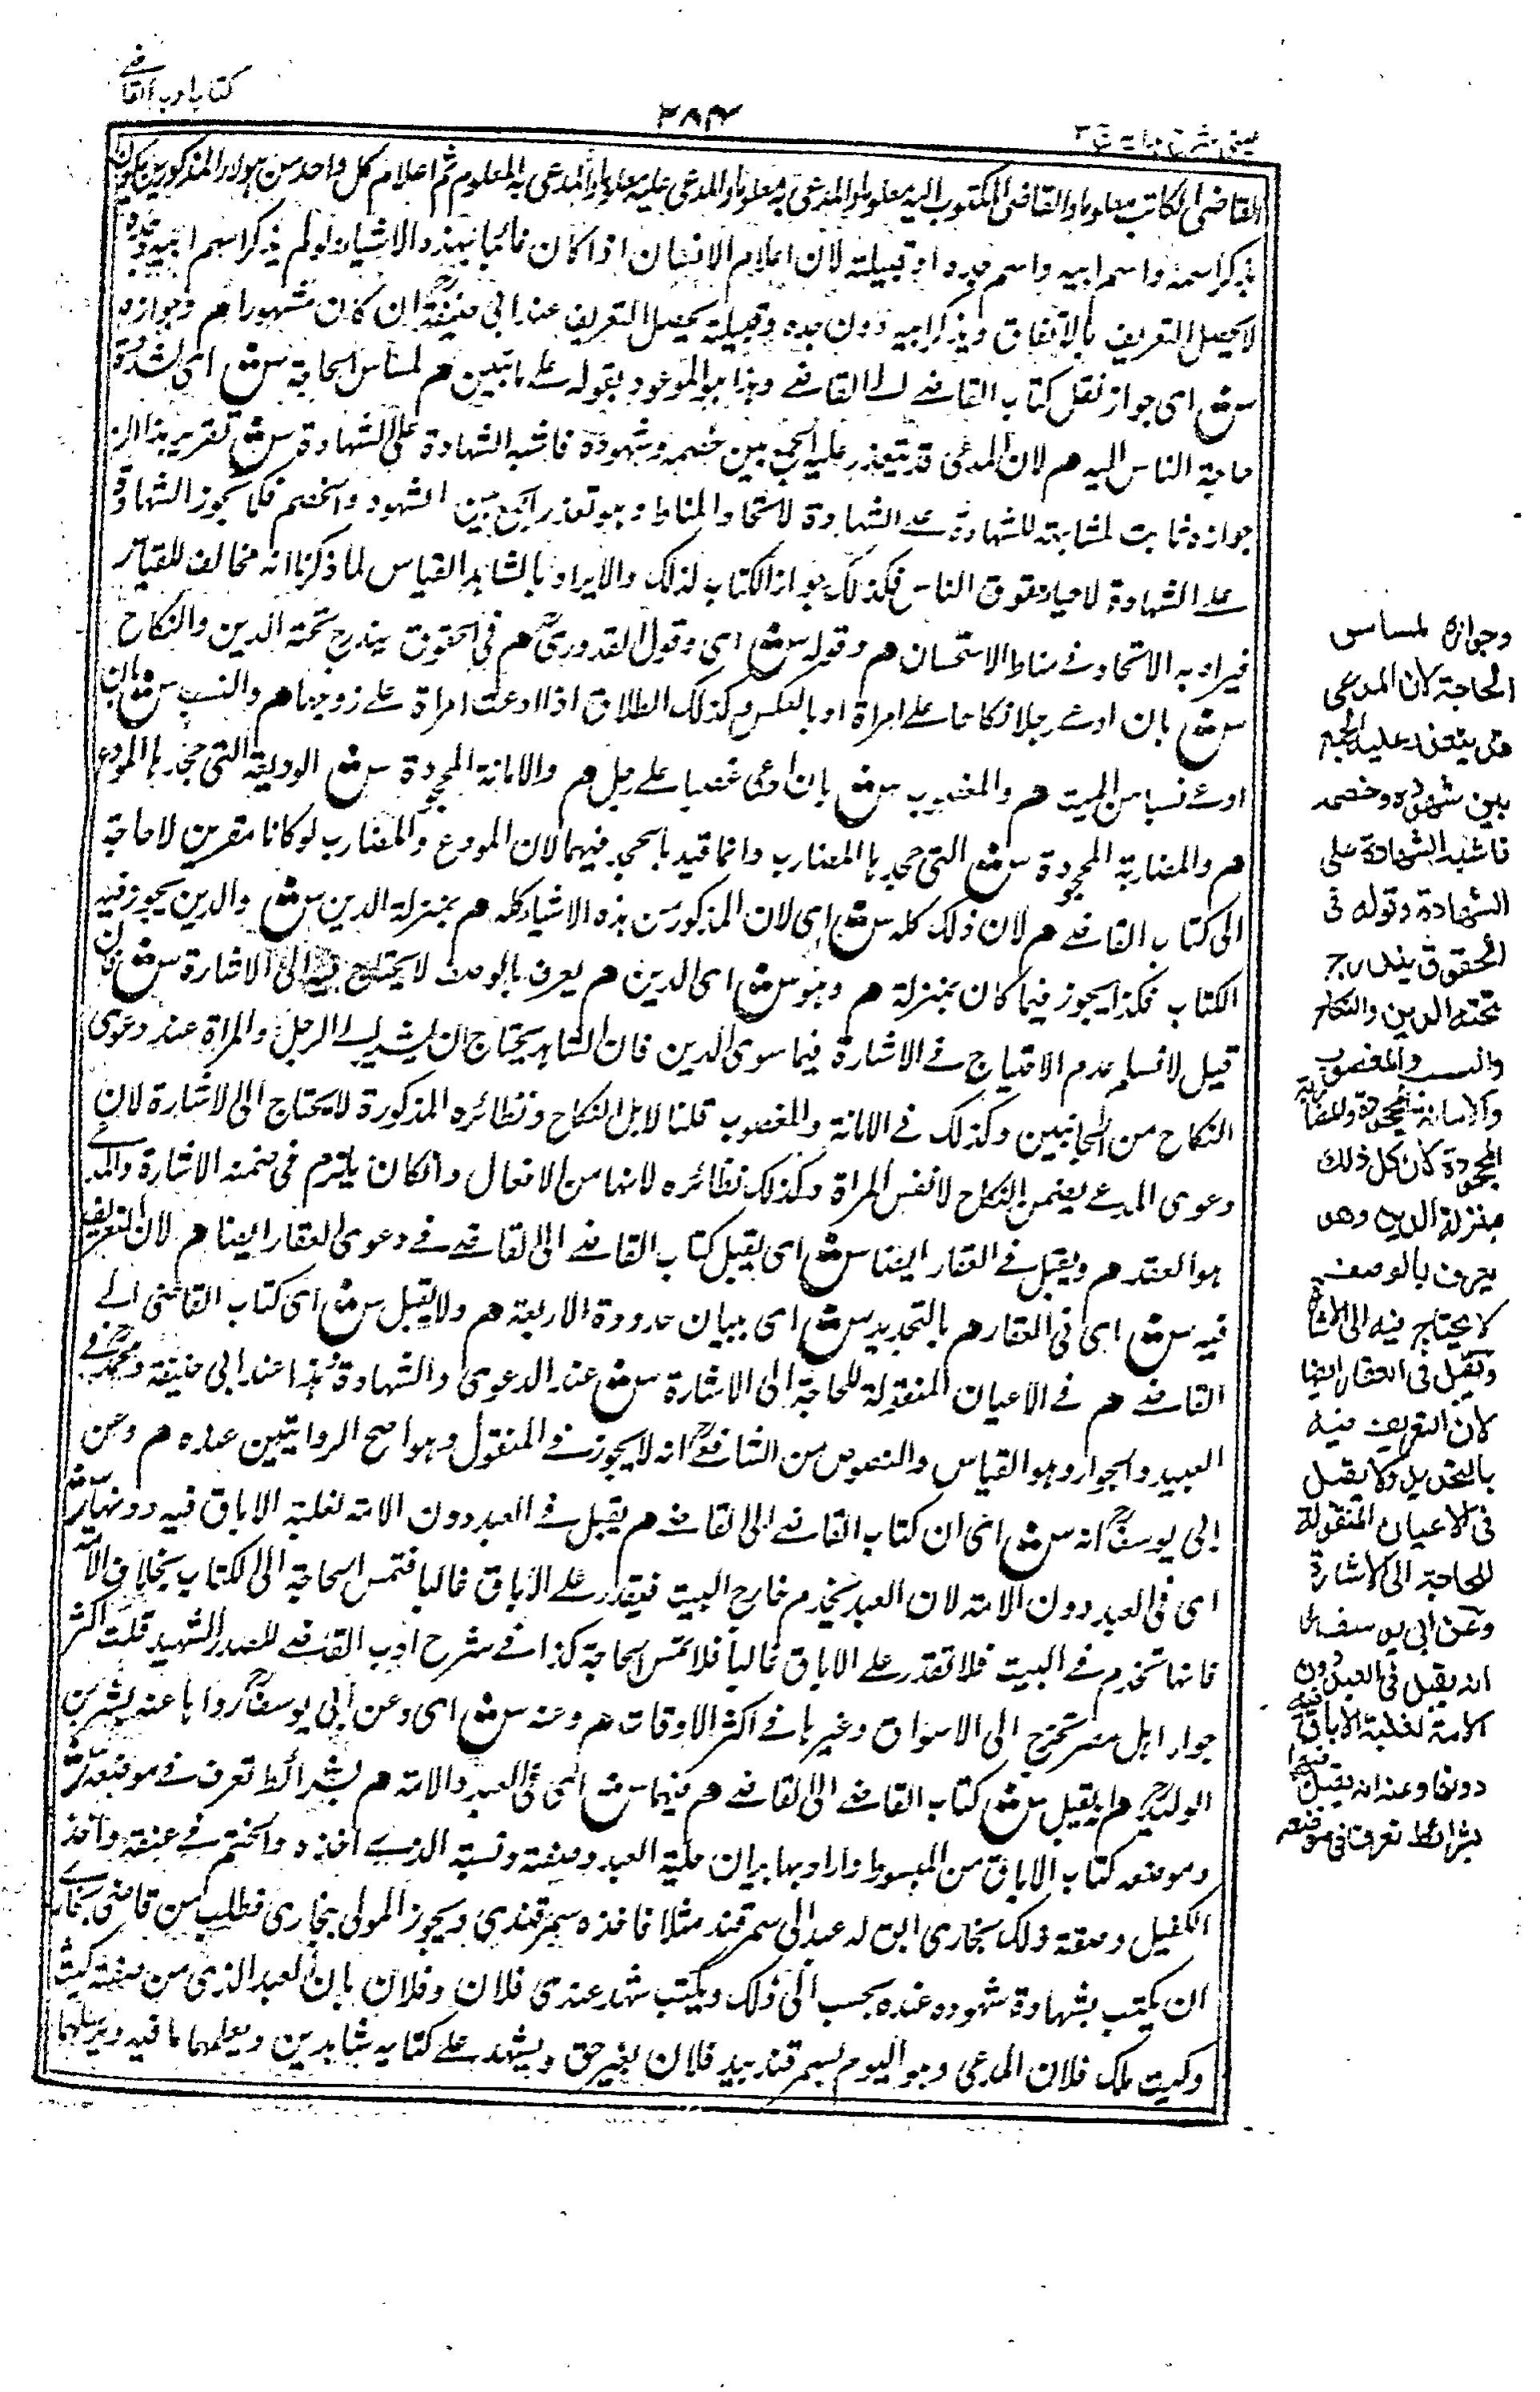 كتاب ادب القاضے
٢٨٣
عينى شرح هداية ج ٣
القاضى الكاتب معلوما والقاضى المكتوب اليه معلوما والمدعى به معلوما والمدعى عليه معلوما والمدعى به المعلوم ثم اعلام كل واحد من هولاء المذكورين يكون
بذكر اسمه واسم ابيه واسم جده او قبيلته لان اعلام الانسان اذا كان غائبا بهذه الاشياء ولو لم يذكر اسم ابيه وجده
لا يحصل التعريف بالاتفاق وبذكر ابيه دون جده وقبيلة يحصل التعريف عند ابى حنيفةؒ ان كان مشهورا هم وجوازه
سش اى جواز نقل كتاب القاضے الے القاضے وهذا هو الموعود بقوله على ما تبين هم لمساس الحاجة سش اى لشدة
حاجة الناس اليه هم لان المدعى قد يتعذر عليه الجمع بين خصمه وشهوده فاشبه الشهادة على الشهادة سش تقريره هذا ان
جوازه ثابت لمشابهته للشهادة علے الشهادة لاتحاد المناط وهو تعذر الجمع بين الشهود والخصم فكما يجوز الشهادة
علے الشهادة لاحياء حقوق الناس فكذلك جواز الكتاب لذلك والايراد بالشاهد القياس لما ذكرنا انه مخالف للقياس
فيراد به الاتحاد فے مناط الاستحسان هم وقوله سش اى وقول القدورىؒ هم فى الحقوق يندرج تحته الدين والنكاح
سش بان ادعے رجلا نكاحا علے امراة او بالعكس وكذلك الطلاق اذا ادعت امراة علے زوجها هم والنسب سش بان
ادعے نسبا من الميت هم والمغصوب سش بان ادعى غصبا علے رجل هم والامانة المجحودة سش الوديعة التى جحدها المودع
هم والمضاربة المجحودة سش التى جحدها المضارب وانما قيد بالجحد فيهما لان المودع والمضارب لو كانا مقرين لا حاجة
الى كتاب القاضے هم لان ذلك كله سش اى لان المذكور من هذه الاشياء كله هم بمنزلة الدين سش والدين يجوز فيه
الكتاب فكذا يجوز فيما كان بمنزلة هم وهو سش اى الدين هم يعرف بالوصف لا يحتاج فيه الى الاشارة سش فان
قيل لا نسلم عدم الاحتياج فے الاشارة فيما سوى الدين فان الشاهد يحتاج ان يشير الے الرجل والمراة عند دعوى
النكاح من الجانبين وكذلك فے الامانة والمغصوب قلنا لا بل النكاح ونظائره المذكورة لا يحتاج الى الاشارة لان
دعوى المدعے يضمن النكاح لا نفس المراة وكذلك نظائره لانها من الافعال وان كان يلزم فى ضمنه الاشارة والمدعے
هو العقد هم ويقبل فے العقار ايضا سش اى يقبل كتاب القاضے الى القاضے فے دعوى العقار ايضا هم لان التعريف
فيه سش اى فى العقار هم بالتحديد سش اى ببيان حدوده الاربعة هم ولا يقبل سش اى كتاب القاضى الے
القاضے هم فے الاعيان المنقولة للحاجة الى الاشارة سش عند الدعوى والشهادة وهذا عند ابى حنيفة ومحمدؒ فے
العبيد والجوار وهو القياس والنصوص من الشافعىؒ انه لا يجوز فے المنقول وهو اصح الروايتين عنده هم وعن
ابى يوسفؒ انه سش اى ان كتاب القاضے الى القاضے هم يقبل فے العبد دون الامة لغلبة الاباق فيه دونها سش
اى فى العبد دون الامة لان العبد يخدم خارج البيت فيقدر علے الاباق غالبا فتمس الحاجة الى الكتاب بخلاف الامة
فانها تخدم فے البيت فلا تقدر علے الاباق غالبا فلا تمس الحاجة كذا فے شرح ادب القاضے للصدر الشهيد قلت اكثر
جوار اهل مصر تخرج الى الاسواق وغيرها فے اكثر الاوقات هم وعنه سش اى وعن ابى يوسفؒ رواها عنه بشر بن
الوليدؒ هم انه يقبل سش كتاب القاضے الى القاضے هم فيهما سش اى فى العبد والامة هم بشرائط تعرف فے موضعه سش
وموضعه كتاب الاباق من المبسوط واراد بها بيان حلية العبد وصفته ونسبة الذے اخذه والختم فے عنقه واخذ
الكفيل وصفة ذلك بخارى ابق له عبد الى سمرقند مثلا فاخذه سمرقندى ويجوز المولى ببخارى فطلب من قاضى بخارے
ان يكتب بشهادة شهوده عنده يجب الى ذلك ويكتب شهد عندى فلان وفلان بان العبد الذى من صفته كيت
وكيت ملك فلان المدعى وهو اليوم بسمرقند بيد فلان بغير حق ويشهد علے كتابه شاهدين ويعلمهما ما فيه ويرسلهما
وجوازه لمساس
الحاجة لان المدعى
قد يتعذر عليه الجمع
بين شهوده وخصمه
فاشبه الشهادة على
الشهادة وقوله فى
الحقوق يندرج
تحته الدين والنكاح
والنسب والمغصوب
والامانة المجحودة والمضاربة
المجحودة لان كل ذلك
بمنزلة الدين وهو
يعرف بالوصف
لا يحتاج فيه الى الاشارة
ويقبل فى العقار ايضا
لان التعريف فيه
بالتحديد ولا يقبل
فى الاعيان المنقولة
للحاجة الى الاشارة
وعن ابى يوسفؒ
انه يقبل فى العبد دون
الامة لغلبة الاباق فيه
دونها وعنه انه يقبل فيهما
بشرائط تعرف فى موضعه